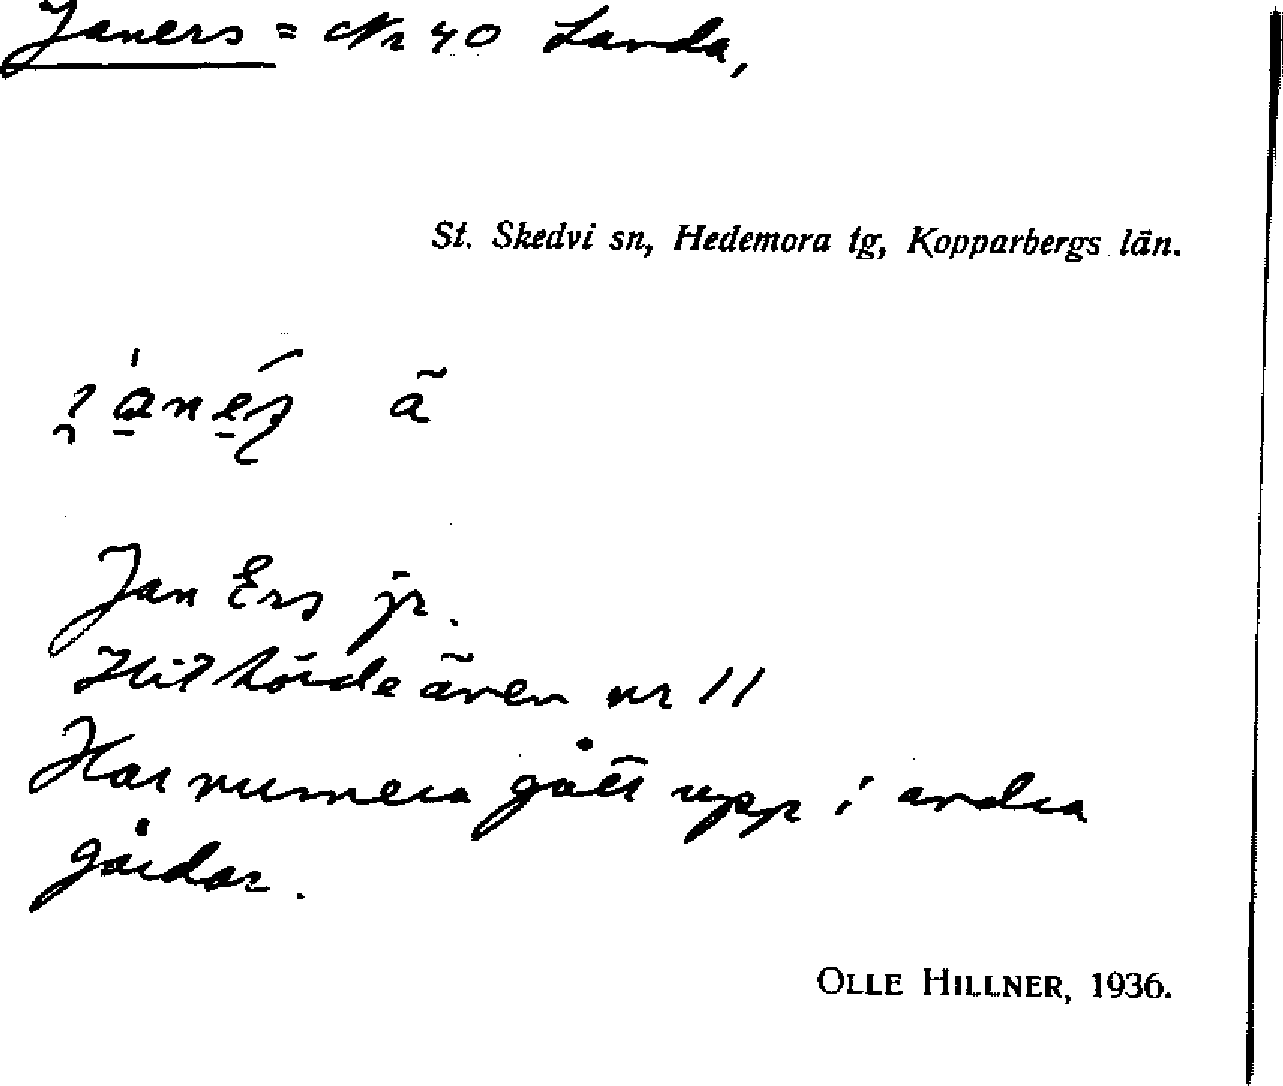 Janers = Nr 40 Landa,
St. Skedvi sn, Hedemora tg, Kopparbergs län.
ã
Jan Ers jr.
Hit hörde även nr 11
Har numera gått upp i andra
gårdar.
OLLE HILLNER, 1936.